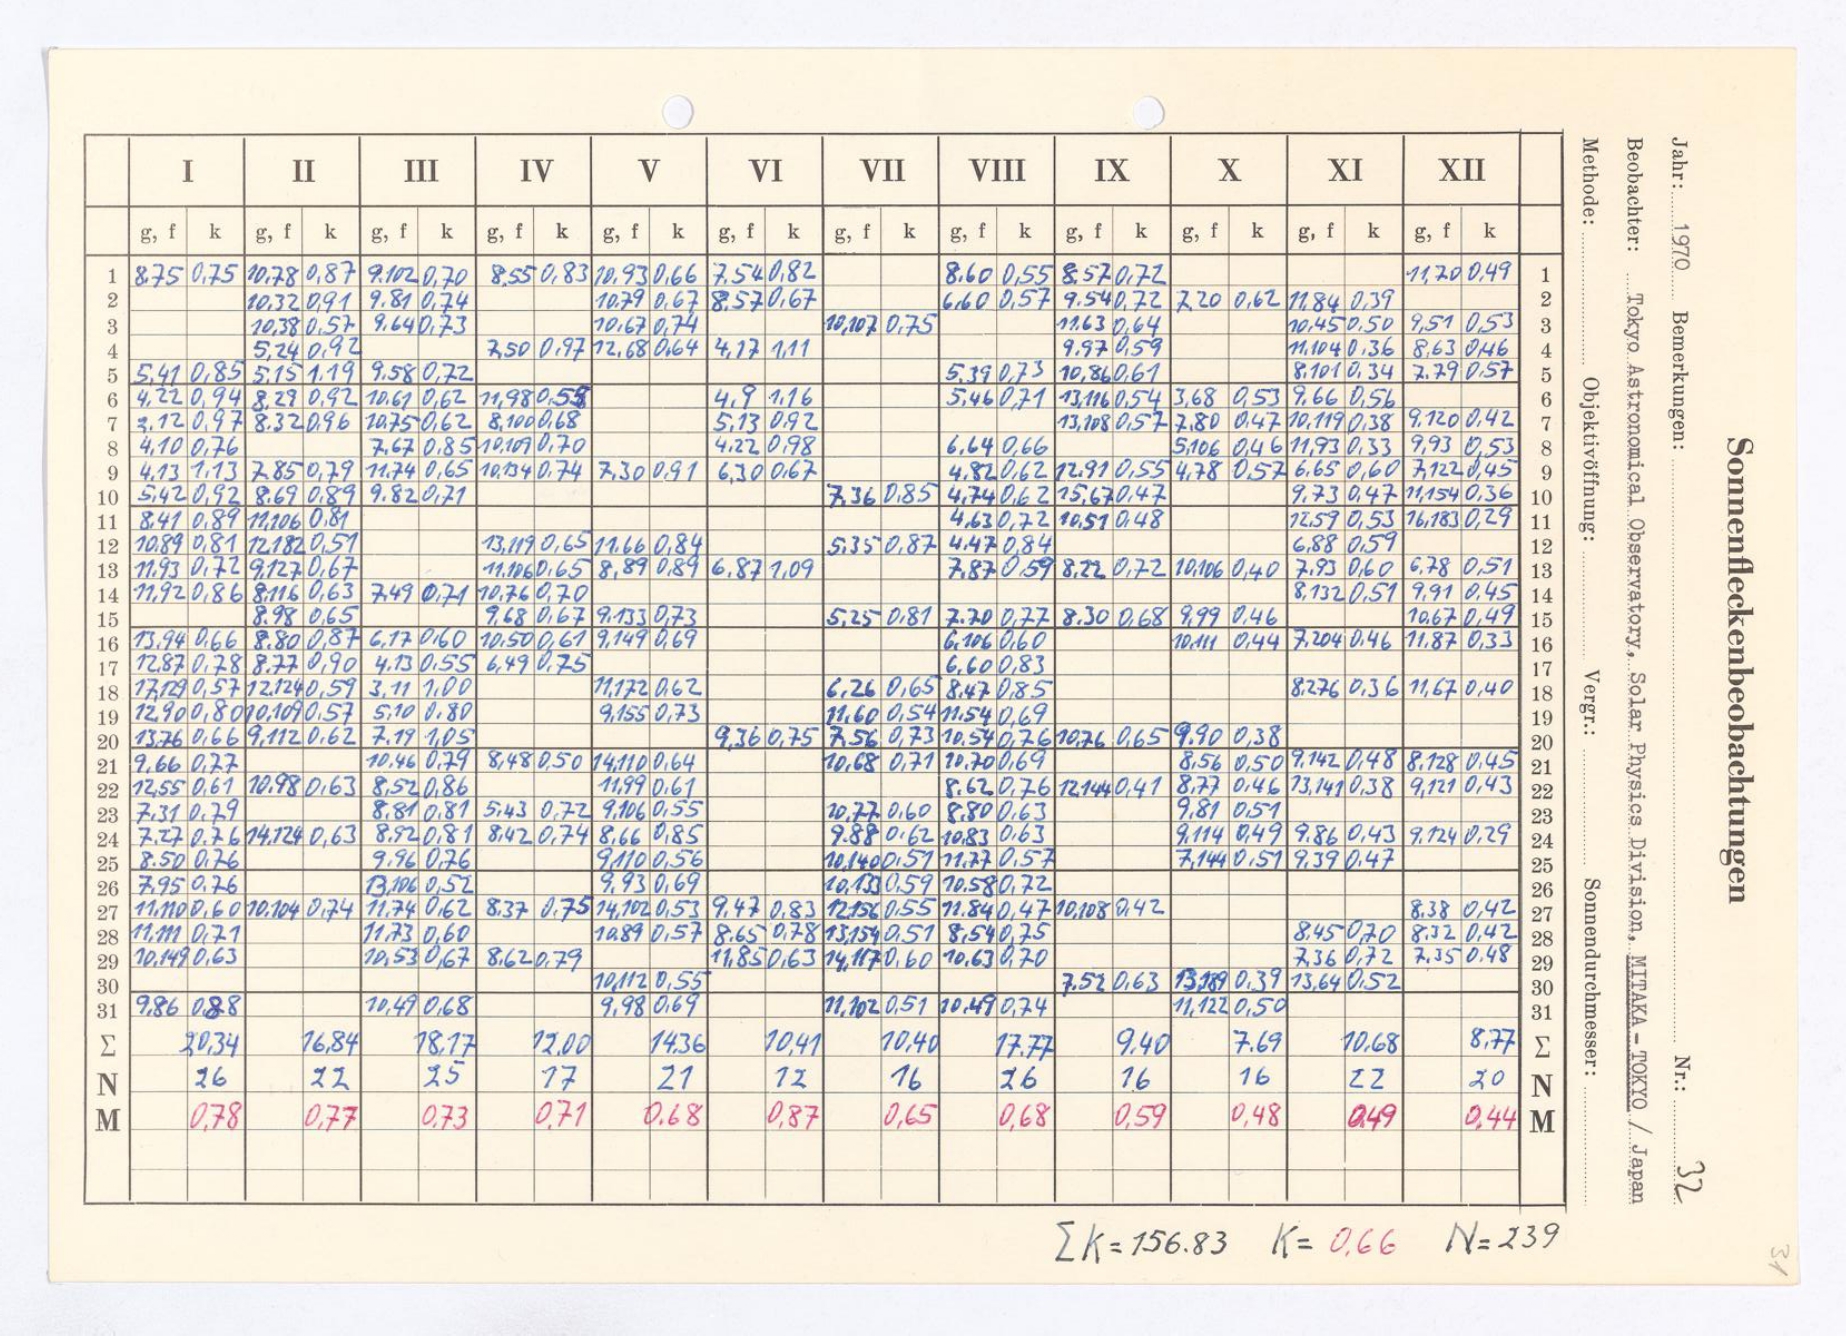 Sonnenfleckenbeobachtungen
Jahr: 1970 Bemerkungen: Nr.: 32
Beobachter: Tokyo Astronomical Observatory, Solar Physics Division, MITAKA-TOKYO / Japan
Methode: Objektivöffnung: Vergr.: Sonnendurchmesser:
I II III IV V VI VII VIII IX X XI XII
g, f k g, f k g, f k g, f k g, f k g, f k g, f k g, f k g, f k g, f k g, f k g, f k
1 8.75 0,75 10,78 0,87 9,102 0,70 8,55 0,83 10,93 0,66 7,54 0,82 8.60 0,55 8,57 0,72 11,70 0,49 1
2 10,32 0,91 9.81 0,74 10,79 0,67 8,57 0,67 6,60 0,57 9.54 0,72 7,20 0,62 11,84 0,39 2
3 10,38 0,57 9,64 0,73 10,67 0,74 10,107 0,75 11,63 0,64 10,45 0,50 9,51 0,53 3
4 5,24 0,92 7,50 0,97 12,68 0,64 4,17 1,11 9,97 0,59 11,104 0,36 8,63 0,46 4
5 5,41 0,85 5,15 1,19 9,58 0,72 5,39 0,73 10,86 0,61 8,101 0,34 7.79 0,57 5
6 4,22 0,94 8,29 0,92 10,61 0,62 11,98 0,58 4,9 1,16 5,46 0,71 13,116 0,54 3,68 0,53 9,66 0,56 6
7 2,12 0,97 8,32 0,96 10,75 0,62 8,100 0,68 5,13 0,92 13,108 0,57 7,80 0,47 10,119 0,38 9,120 0,42 7
8 4,10 0,76 7,67 0,85 10,109 0,70 4,22 0,98 6,64 0,66 5,106 0,46 11,93 0,33 9,93 0,53 8
9 4,13 1,13 7,85 0,79 11,74 0,65 10,134 0,74 7,30 0,91 6,30 0,67 4,82 0,62 12,91 0,55 4,78 0,57 6,65 0,60 7,122 0,45 9
10 5,42 0,92 8,69 0,89 9,82 0,71 7,36 0,85 4,74 0,62 15,67 0,47 9,73 0,47 11,154 0,36 10
11 8,41 0,89 11,106 0,81 4,63 0,72 10,51 0,48 12,59 0,53 16,183 0,29 11
12 10,89 0,81 12,182 0,51 13,119 0,65 11,66 0,84 5,35 0,87 4,47 0,84 6,88 0,59 12
13 11,93 0,72 9,127 0,67 11,106 0,65 8,89 0,89 6,87 1,09 7,87 0,59 8,22 0,72 10,106 0,40 7,93 0,60 6,78 0,51 13
14 11,92 0,86 8,116 0,63 7,49 0,71 10,76 0,70 8,132 0,51 9,91 0,45 14
15 8,98 0,65 9,68 0,67 9,133 0,73 5,25 0,81 7.70 0,77 8,30 0,68 9,99 0,46 10,67 0,49 15
16 13,94 0,66 8.80 0,87 6,17 0,60 10,50 0,61 9,149 0,69 6,106 0,60 10,111 0,44 7,204 0,46 11,87 0,33 16
17 12,87 0,78 8,77 0,90 4,13 0,55 6,49 0,75 6,60 0,83 17
18 17,129 0,57 12,124 0,59 3,11 1,00 11,172 0,62 6,26 0,65 8,47 0,85 8,276 0,36 11,67 0,40 18
19 12,90 0,80 10,109 0,57 5,10 0,80 9,155 0,73 11,60 0,54 11,54 0,69 19
20 13,76 0,66 9,112 0,62 7,19 1,05 9,36 0,75 7,56 0,73 10,54 0,76 10,76 0,65 9,90 0,38 20
21 9,66 0,77 10,46 0,79 8,48 0,50 14,110 0,64 10,68 0,71 10,70 0,69 8,56 0,50 9,142 0,48 8,128 0,45 21
22 12,55 0,61 10,98 0,63 8,52 0,86 11,99 0,61 8,62 0,76 12,144 0,41 8,77 0,46 13,141 0,38 9,121 0,43 22
23 7,31 0,79 8,81 0,81 5,43 0,72 9,106 0,55 10,77 0,60 8,80 0,63 9,81 0,51 23
24 7,27 0,76 14,124 0,63 8,92 0,81 8,42 0,74 8,66 0,85 9,88 0,62 10,83 0,63 9,114 0,49 9,86 0,43 9,124 0,29 24
25 8.50 0,76 9,96 0,76 9,110 0,56 10,140 0,51 11,77 0,57 7,144 0,51 9,39 0,47 25
26 7,95 0,76 13,106 0,52 9,93 0,69 10,133 0,59 10,58 0,72 26
27 11,110 0,60 10,104 0,74 11,74 0,62 8,37 0,75 14,102 0,53 9,47 0,83 12,156 0,55 11,84 0,47 10,108 0,42 8,38 0,42 27
28 11,111 0,71 11,73 0,60 10,89 0,57 8,65 0,78 13,154 0,51 8,54 0,75 8,45 0,70 8,32 0,42 28
29 10,149 0,63 10,53 0,67 8,62 0,79 11,85 0,63 14,117 0,60 10,63 0,70 7,36 0,72 7,35 0,48 29
30 10,112 0,55 7,52 0,63 13,189 0,39 13,64 0,52 30
31 9,86 0,88 10,49 0,68 9,98 0,69 11,102 0,51 10,49 0,74 11,122 0,50 31
Σ 20,34 16,84 18,17 12,00 14,36 10,41 10,40 17.77 9,40 7.69 10,68 8,77 Σ
N 26 22 25 17 21 12 16 26 16 16 22 20 N
M 0,78 0,77 0,73 0,71 0.68 0,87 0,65 0,68 0,59 0,48 0,49 0,44 M
ΣK = 156.83 K = 0,66 N = 239
31